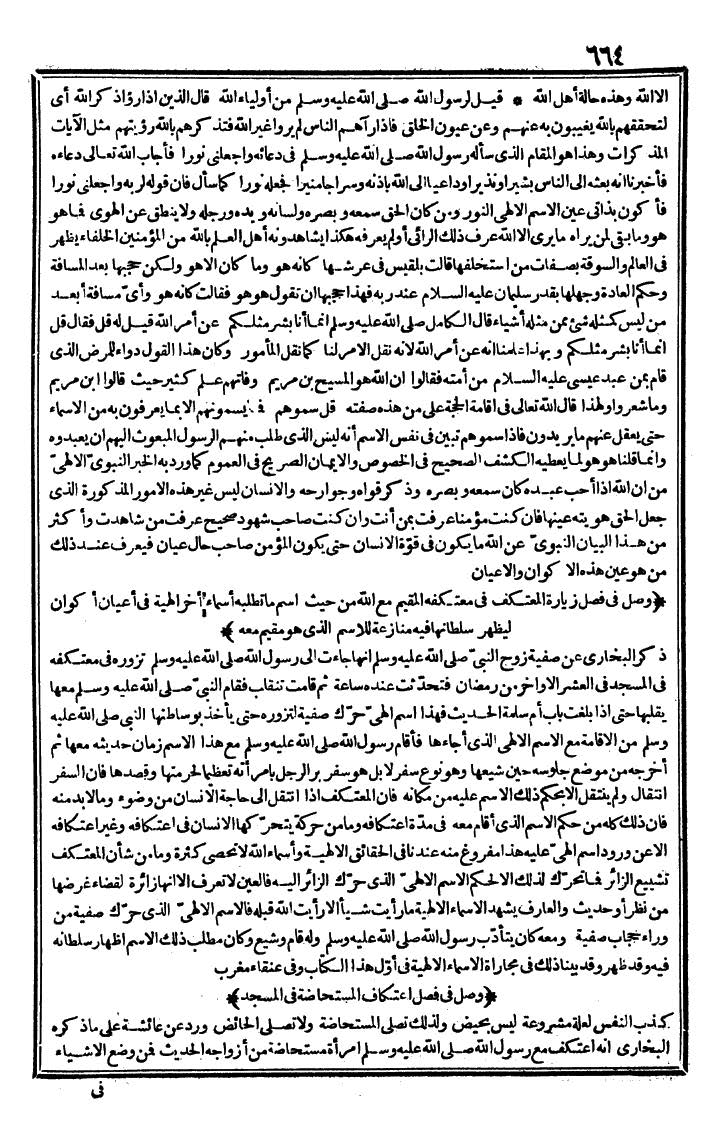 ٦٦٤
الا الله وهذه حالة أهل الله * قيل لرسول الله صلى الله عليه وسلم من أولياء الله قال الذين اذا رؤا ذكر الله أى
لتحققهم بالله يغيبون به عنهم وعن عيون الخلق فاذا رآهم الناس لم يروا غير الله فتذكرهم بالله رؤيتهم مثل الآيات
المذكرات وهذا هو المقام الذى سأله رسول الله صلى الله عليه وسلم فى دعائه واجعلنى نورا فأجاب الله تعالى دعاءه
فأخبرنا انه بعثه الى الناس بشيرا ونذيرا وداعيا الى الله باذنه وسراجا منيرا فجعله نورا كما سأل فان قوله لربه واجعلنى نورا
فأكون بذاتى عين الاسم الالهى النور ومن كان الحق سمعه وبصره ولسانه ويده ورجله ولا ينطق عن الهوى فما هو
هو وما بقى لمن يراه ما يرى الا الله عرف ذلك الرائى أولم يعرفه هكذا يشاهدونه أهل العلم بالله من المؤمنين الخلفاء يظهر
فى العالم والسوقة بصفات من استخلفها قالت بلقيس فى عرشها كانه هو وما كان الا هو ولكن حجبها بعد المسافة
وحكم العادة وجهلها بقدر سليمان عليه السلام عند ربه فهذا حجبها ان تقول هو هو فقالت كانه هو وأىّ مسافة أبعد
من ليس كمثله شئ ممن مثله أشياء قال الكامل صلى الله عليه وسلم انما أنا بشر مثلكم عن أمر الله قيل له قل فقال قل
انما أنا بشر مثلكم وبهذا علمنا انه عن أمر الله لانه نقل الامر لنا كما نقل المأمور وكان هذا القول دواء للمرض الذى
قام بمن عبد عيسى عليه السلام من أمته فقالوا ان الله هو المسيح بن مريم وفاتهم علم كثير حيث قالوا ابن مريم
وما شعروا ولهذا قال الله تعالى فى اقامة الحجة على من هذه صفته قل سموهم فما يسمونهم الا بما يعرفون به من الاسماء
حتى يعقل عنهم ما يريدون فاذا سموهم تبين فى نفس الاسم أنه ليس الذى طلب منهم الرسول المبعوث اليهم ان يعبدوه
وانما قلنا هو هو لما يعطيه الكشف الصحيح فى الخصوص والايمان الصريح فى العموم كما ورد به الخبر النبوىّ الالهىّ
من ان الله اذا أحب عبده كان سمعه وبصره وذكر قواه وجوارحه والانسان ليس غير هذه الامور المذكورة الذى
جعل الحق هويته عينها فان كنت مؤمنا عرفت بمن أنت وان كنت صاحب شهود صحيح عرفت من شاهدت وأكثر
من هذا البيان النبوىّ عن الله ما يكون فى قوّة الانسان حتى يكون المؤمن صاحب حال عيان فيعرف عند ذلك
من هو عين هذه الاكوان والاعيان
﴿وصل فى فصل زيارة المعتكف فى معتكفه المقيم مع الله من حيث اسم ما تطلبه أسماء أخر الهية فى أعيان أكوان
ليظهر سلطانها فيه منازعة للاسم الذى هو مقيم معه﴾
ذكر البخارى عن صفية زوج النبىّ صلى الله عليه وسلم انها جاءت الى رسول الله صلى الله عليه وسلم تزوره فى معتكفه
فى المسجد فى العشر الاواخر من رمضان فتحدّثت عنده ساعة ثم قامت تنقلب فقام النبىّ صلى الله عليه وسلم معها
يقلبها حتى اذا بلغت باب أم سلمة الحديث فهذا اسم الهىّ حرّك صفية لتزوره حتى يأخذ بوساطتها النبى صلى الله عليه
وسلم من الاقامة مع الاسم الالهى الذى أجاءها فأقام رسول الله صلى الله عليه وسلم مع هذا الاسم زمان حديثه معها ثم
أخرجه من موضع جلوسه حين شيعها وهو نوع سفر لا بل هو سفر بر الرجل بامرأته تعظيما لحرمتها وقصدها فان السفر
انتقال ولم ينتقل الا بحكم ذلك الاسم عليه من مكانه فان المعتكف اذا انتقل الى حاجة الانسان من وضوء وما لا بد منه
فان ذلك كله من حكم الاسم الذى أقام معه فى مدّة اعتكافه وما من حركة يتحرّكها الانسان فى اعتكافه وغير اعتكافه
الا عن ورود اسم الهىّ عليه هذا مفروغ منه عندنا فى الحقائق الالهية وأسماء الله لا تحصى كثرة وما من شأن المعتكف
تشييع الزائر فما تحرك لذلك الا لحكم الاسم الالهىّ الذى حرّك الزائر اليه فالعين لا تعرف الا انها زائرة لقضاء غرضها
من نظر أو حديث والعارف يشهد الاسماء الالهية ما رأيت شيأ الا رأيت الله قبله فالاسم الالهىّ الذى حرّك صفية من
وراء حجاب صفية ومعه كان يتأدّب رسول الله صلى الله عليه وسلم وله قام وشيع وكان مطلب ذلك الاسم اظهار سلطانه
فيه وقد ظهر وقد بينا ذلك فى مجاراة الاسماء الالهية فى أوّل هذا الكتاب وفى عنقاء مغرب
﴿وصل فى فصل اعتكاف المستحاضة فى المسجد﴾
كذب النفس لعلة مشروعة ليس بحيض ولذلك تصلى المستحاضة ولا تصلى الحائض ورد عن عائشة على ما ذكره
البخارى انه اعتكف مع رسول الله صلى الله عليه وسلم امرأة مستحاضة من أزواجه الحديث فمن وضع الاشياء
فى